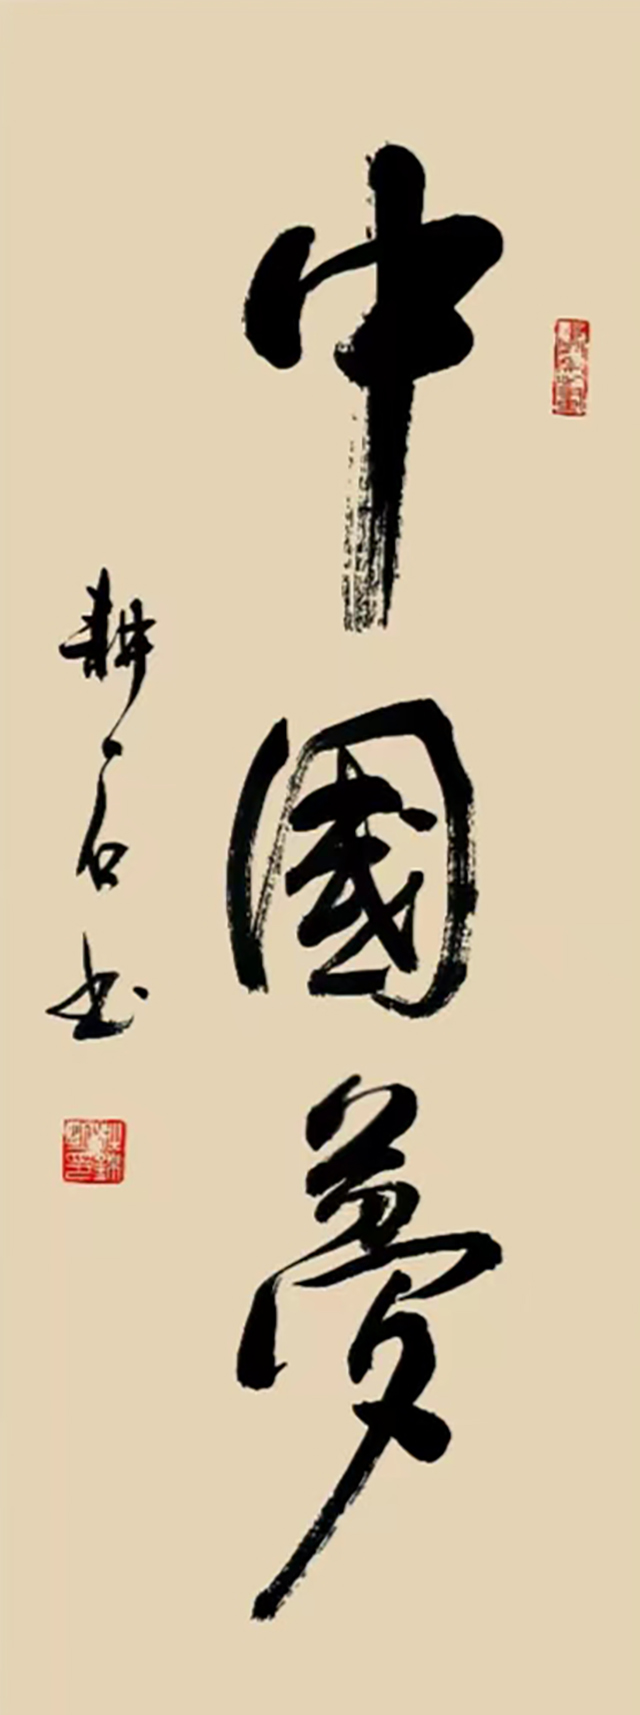 中國夢
耕石书